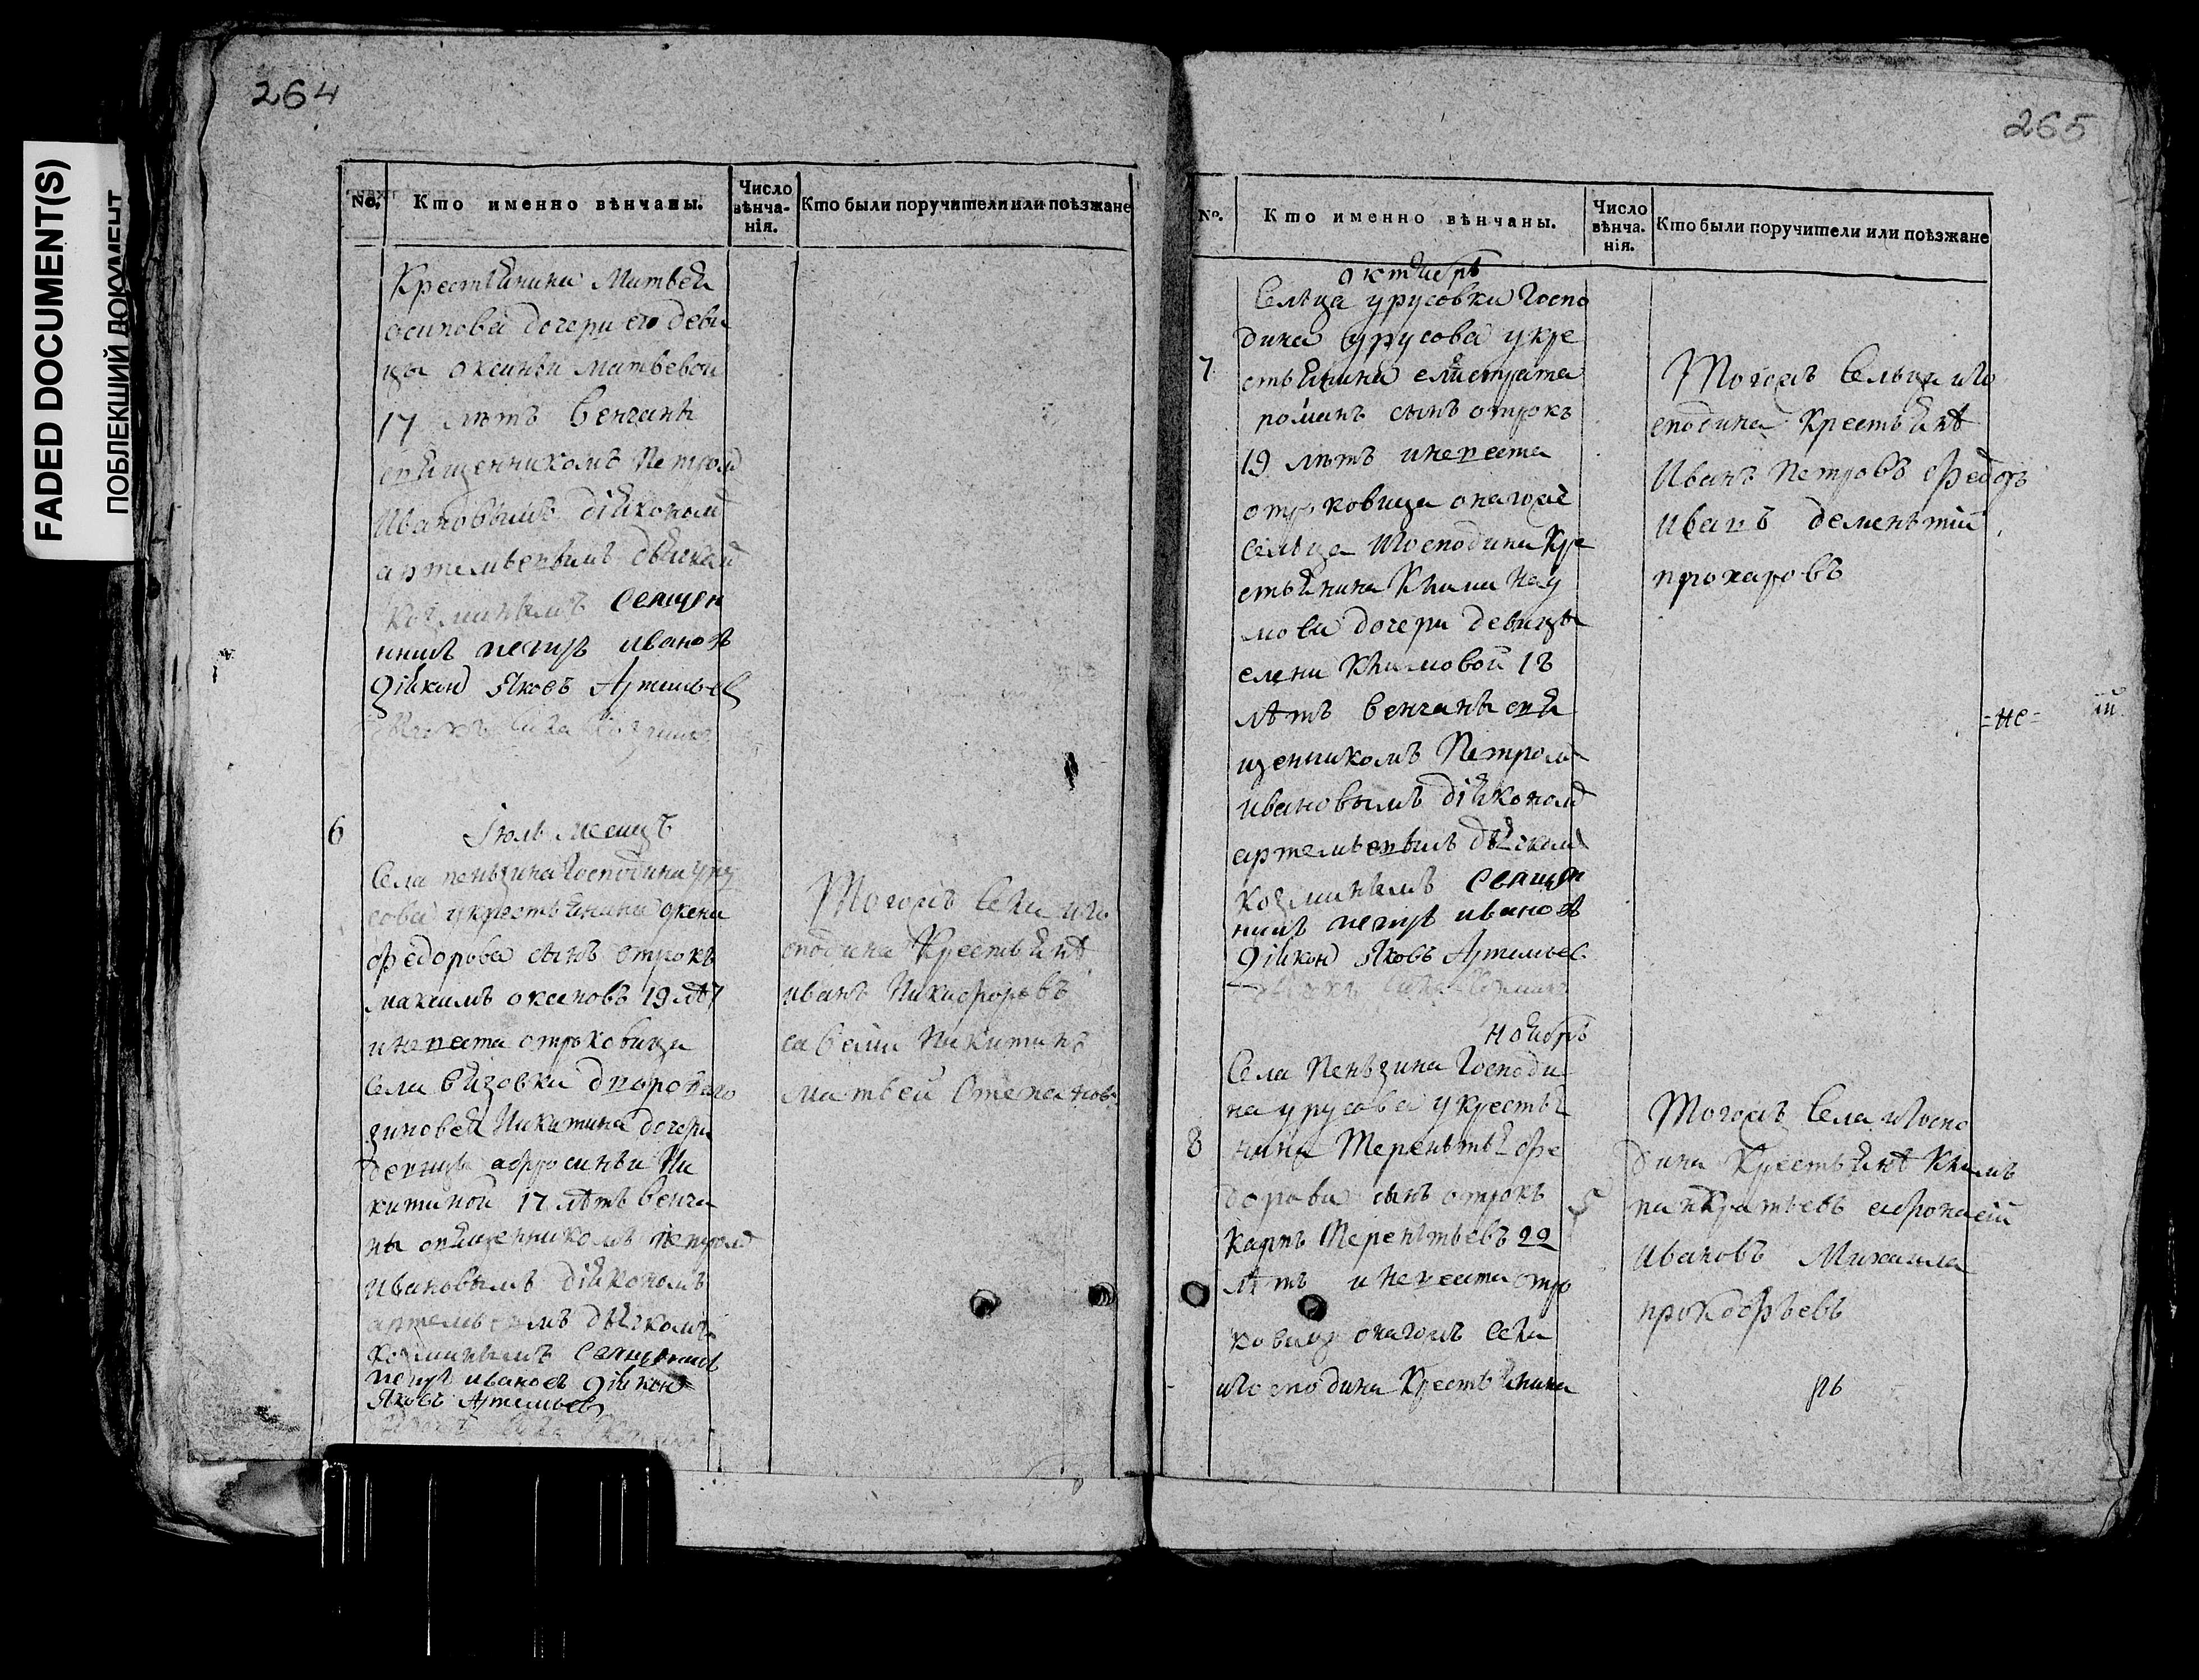 FADED DOCUMENT(S)
ПОБЛЕКШИЙ ДОКУМЕНТ
264
No.
Кто именно вѣнчаны.
Число вѣнча-нія.
Кто были поручители или поѣзжане
Крестьянина Матвея
осипова дочери его деви
цы оксиньи матвевои
17 лѣтъ венчаны
священникомъ Петром
Ивановымъ діяконом
артемьевымъ дьячком
козминымъ Священ
никъ петръ ивановъ
Діякон Яковъ Артемьев
6
Іюль месецъ
Села пеньзина Господина уру
сова у крестьянина
федорова сынъ отрокъ
максимъ 19 лѣт
и невеста отроковица
Села вязовки дворового
зиновея Никитина дочери
девицы афросиньи Ни
китиной 17 лѣтъ венча
ны священникомъ петром
Ивановымъ діякономъ
артемьевымъ дьячкомъ
козминымъ Священникъ
петръ ивановъ Діякон
Яковъ Артемьев
Тогожъ Села и го
сподина Крестьянѣ
иванъ Никифоровъ
савелий Никитинъ
матвей Степановъ
265
No.
Кто именно вѣнчаны.
Число вѣнча-нія.
Кто были поручители или поѣзжане
октябрь
Сельца урусовки Госпо
дина урусова у кре
7
стьянина елистрата
романъ сынъ отрокъ
19 лѣтъ и невеста
отроковица онагожъ
Сельца и Господина Кре
стьянина Клима Нау
мова дочери девицы
елены Климовой 18
лѣтъ венчаны свя
щенникомъ Петромъ
ивановымъ діяконом
артемьевымъ дьячком
козминымъ Священ
никъ петръ ивановъ
Діякон Яковъ Артемьев
Тогожъ Сельца и Го
сподина Крестьянѣ
Иванъ Петровъ Федоръ
Иванъ дементий
прохаровъ
=не=
ноябрь
Села Пеньзина Господи
на урусова у крестья
8
нина Терентья фе
дорова сынъ отрокъ
Карпъ Терентьевъ 22
лѣтъ и невеста отро
ковица онагожъ Села
и Господина Крестьянина
Тогожъ Села и Госпо
дина Крестьянѣ Климъ
панкратьевъ афонасий
Ивановъ Михаила
прокофьевъ